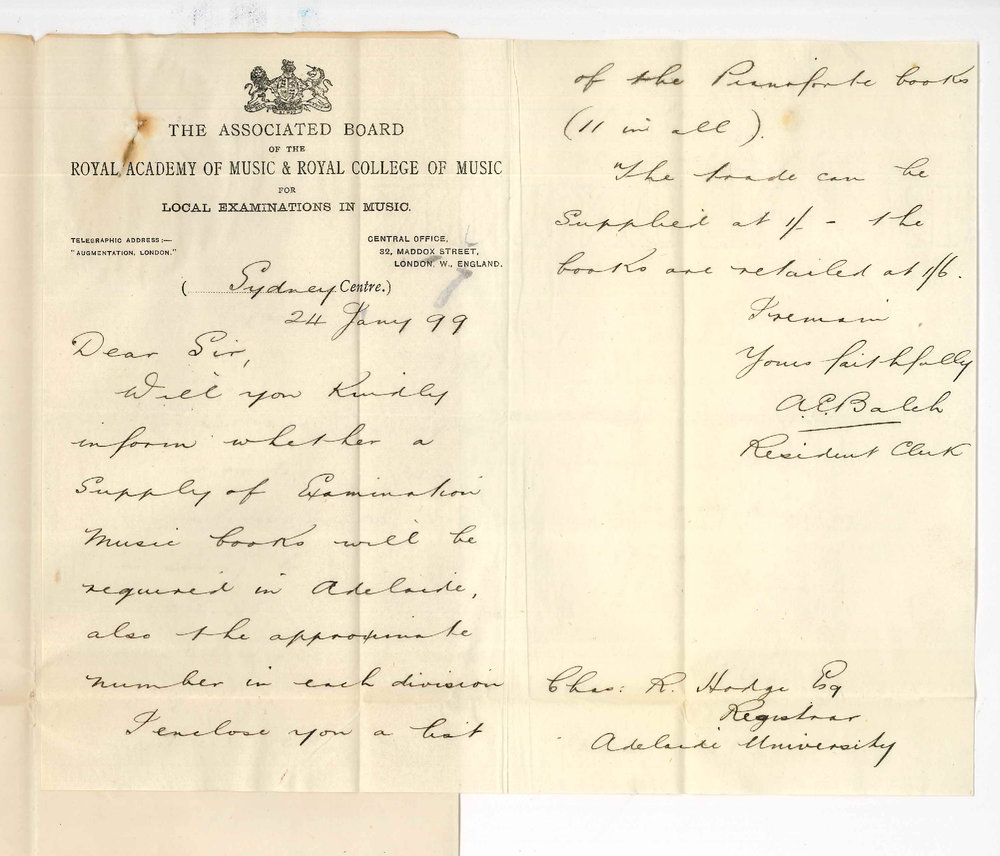 THE ASSOCIATED BOARD
OF THE
ROYAL ACADEMY OF MUSIC & ROYAL COLLEGE OF MUSIC
FOR
LOCAL EXAMINATIONS IN MUSIC.
TELEGRAPHIC ADDRESS:—
"AUGMENTATION, LONDON."
CENTRAL OFFICE,
32, MADDOX STREET,
LONDON, W., ENGLAND.
(Sydney Centre.)
24 Jany 99
Dear Sir,
Will you Kindly
inform whether a
Supply of Examination
Music books will be
required in Adelaide,
also the approximate
number in each division
I enclose you a list
of the Pianoforte books
(11 in all).
The trade can be
Supplied at 1/- the
books are retailed at 1/6.
I remain
Yours faithfully
A.E. Balch
Resident Clerk
Chas: R. Hodge Esq
Registrar
Adelaide University